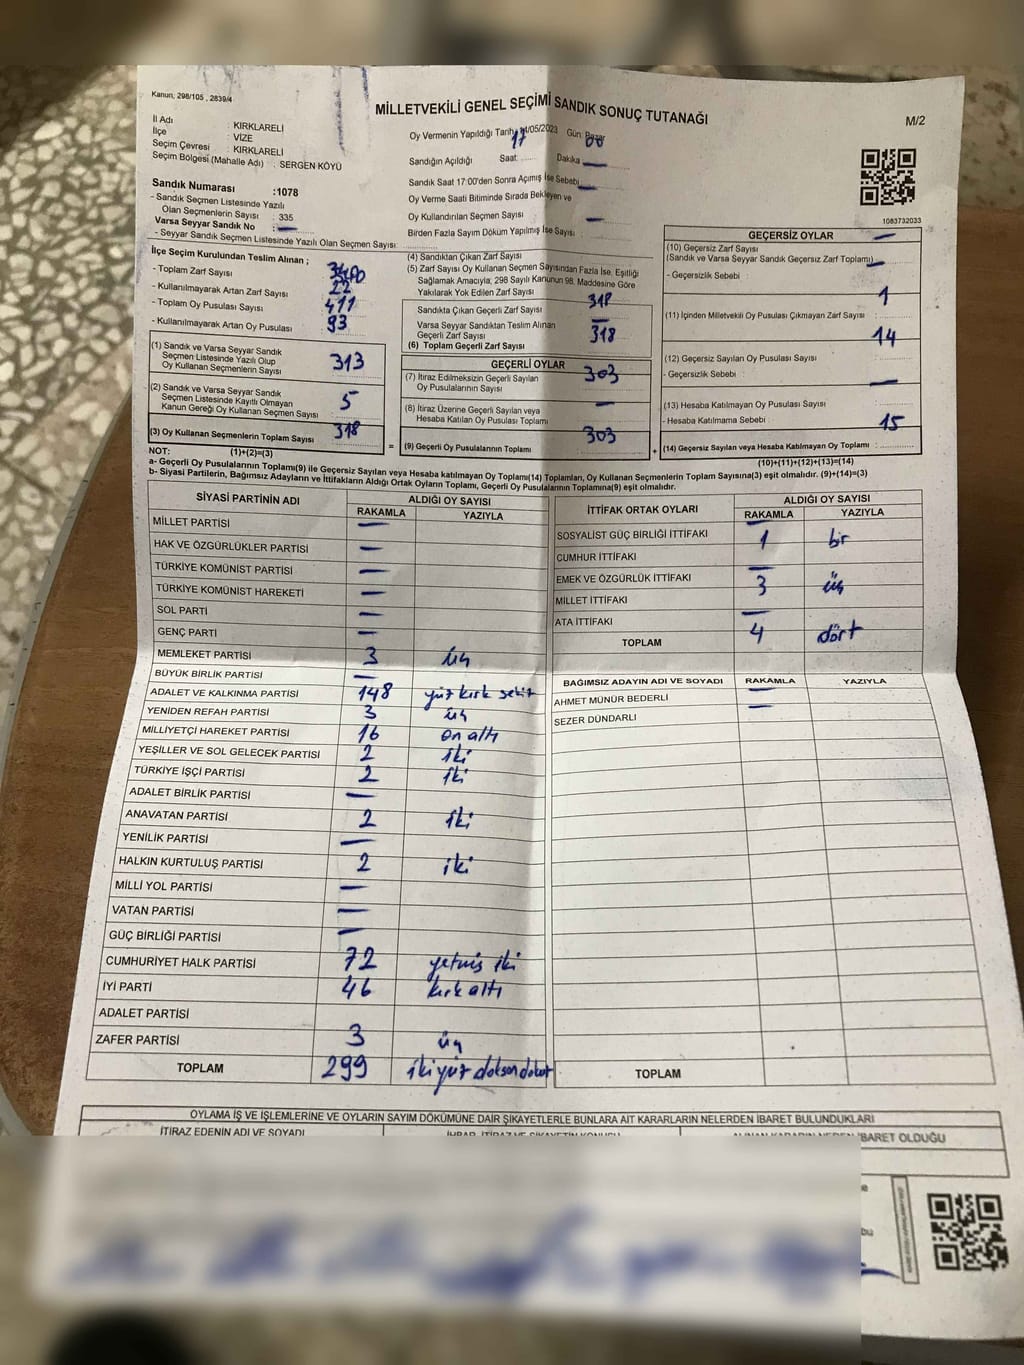 Kanun, 298/105 , 2839/4
MİLLETVEKİLİ GENEL SEÇİMİ SANDIK SONUÇ TUTANAĞI
M/2
İl Adı : KIRKLARELİ
İlçe : VİZE
Seçim Çevresi : KIRKLARELİ
Seçim Bölgesi (Mahalle Adı) : SERGEN KÖYÜ
Sandık Numarası :1078
- Sandık Seçmen Listesinde Yazılı
Olan Seçmenlerin Sayısı : 335
Varsa Seyyar Sandık No : —
- Seyyar Sandık Seçmen Listesinde Yazılı Olan Seçmen Sayısı:
Oy Vermenin Yapıldığı Tarih /05/2023 Gün: Pazar
Sandığın Açıldığı Saat 17 Dakika 00
Sandık Saat 17:00'den Sonra Açımış İse Sebebi —
Oy Verme Saati Bitiminde Sırada Bekleyen ve
Oy Kullandırılan Seçmen Sayısı —
Birden Fazla Sayım Döküm Yapılmış İse Sayısı : —
1083732033
İlçe Seçim Kurulundan Teslim Alınan ;
- Toplam Zarf Sayısı
- Kullanılmayarak Artan Zarf Sayısı 22
- Toplam Oy Pusulası Sayısı 411
- Kullanılmayarak Artan Oy Pusulası 93
(1) Sandık ve Varsa Seyyar Sandık
Seçmen Listesinde Yazılı Olup
Oy Kullanan Seçmenlerin Sayısı 313
(2) Sandık ve Varsa Seyyar Sandık
Seçmen Listesinde Kayıtlı Olmayan
Kanun Gereği Oy Kullanan Seçmen Sayısı 5
(3) Oy Kullanan Seçmenlerin Toplam Sayısı 318
(4) Sandıktan Çıkan Zarf Sayısı
(5) Zarf Sayısı Oy Kullanan Seçmen Sayısından Fazla İse, Eşitliği
Sağlamak Amacıyla; 298 Sayılı Kanunun 98. Maddesine Göre
Yakılarak Yok Edilen Zarf Sayısı
Sandıkta Çıkan Geçerli Zarf Sayısı 318
Varsa Seyyar Sandıktan Teslim Alınan
Geçerli Zarf Sayısı —
(6) Toplam Geçerli Zarf Sayısı 318
GEÇERLİ OYLAR
(7) İtiraz Edilmeksizin Geçerli Sayılan
Oy Pusulalarının Sayısı 303
(8) İtiraz Üzerine Geçerli Sayılan veya
Hesaba Katılan Oy Pusulası Toplamı —
= (9) Geçerli Oy Pusulalarının Toplamı 303
GEÇERSİZ OYLAR
(10) Geçersiz Zarf Sayısı —
(Sandık ve Varsa Seyyar Sandık Geçersiz Zarf Toplamı)
- Geçersizlik Sebebi : —
(11) İçinden Milletvekili Oy Pusulası Çıkmayan Zarf Sayısı 1
(12) Geçersiz Sayılan Oy Pusulası Sayısı 14
- Geçersizlik Sebebi :
(13) Hesaba Katılmayan Oy Pusulası Sayısı —
- Hesaba Katılmama Sebebi :
+ (14) Geçersiz Sayılan veya Hesaba Katılmayan Oy Toplamı : 15
NOT: (1)+(2)=(3)
(10)+(11)+(12)+(13)=(14)
a- Geçerli Oy Pusulalarının Toplamı(9) ile Geçersiz Sayılan veya Hesaba katılmayan Oy Toplamı(14) Toplamları, Oy Kullanan Seçmenlerin Toplam Sayısına(3) eşit olmalıdır. (9)+(14)=(3)
b- Siyasi Partilerin, Bağımsız Adayların ve İttifakların Aldığı Ortak Oyların Toplamı, Geçerli Oy Pusulalarının Toplamına(9) eşit olmalıdır.
SİYASİ PARTİNİN ADI ALDIĞI OY SAYISI
RAKAMLA YAZIYLA
MİLLET PARTİSİ —
HAK VE ÖZGÜRLÜKLER PARTİSİ —
TÜRKİYE KOMÜNİST PARTİSİ —
TÜRKİYE KOMÜNİST HAREKETİ —
SOL PARTİ —
GENÇ PARTİ —
MEMLEKET PARTİSİ 3 üç
BÜYÜK BİRLİK PARTİSİ —
ADALET VE KALKINMA PARTİSİ 148 yüz kırk sekiz
YENİDEN REFAH PARTİSİ 3 üç
MİLLİYETÇİ HAREKET PARTİSİ 16 on altı
YEŞİLLER VE SOL GELECEK PARTİSİ 2 iki
TÜRKİYE İŞÇİ PARTİSİ 2 iki
ADALET BİRLİK PARTİSİ —
ANAVATAN PARTİSİ 2 iki
YENİLİK PARTİSİ —
HALKIN KURTULUŞ PARTİSİ 2 iki
MİLLİ YOL PARTİSİ —
VATAN PARTİSİ —
GÜÇ BİRLİĞİ PARTİSİ —
CUMHURİYET HALK PARTİSİ 72 yetmiş iki
İYİ PARTİ 46 kırk altı
ADALET PARTİSİ
ZAFER PARTİSİ 3 üç
TOPLAM 299 iki yüz doksan dokuz
İTTİFAK ORTAK OYLARI ALDIĞI OY SAYISI
RAKAMLA YAZIYLA
SOSYALİST GÜÇ BİRLİĞİ İTTİFAKI —
CUMHUR İTTİFAKI 1 bir
EMEK VE ÖZGÜRLÜK İTTİFAKI —
MİLLET İTTİFAKI 3 üç
ATA İTTİFAKI —
TOPLAM 4 dört
BAĞIMSIZ ADAYIN ADI VE SOYADI RAKAMLA YAZIYLA
AHMET MÜNÜR BEDERLİ —
SEZER DÜNDARLI —
TOPLAM
OYLAMA İŞ VE İŞLEMLERİNE VE OYLARIN SAYIM DÖKÜMÜNE DAİR ŞİKAYETLERLE BUNLARA AİT KARARLARIN NELERDEN İBARET BULUNDUKLARI
İTİRAZ EDENİN ADI VE SOYADI
İBARET OLDUĞU